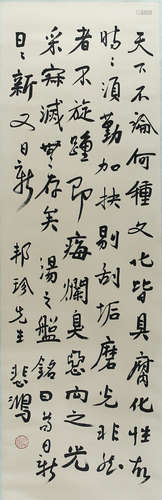 天下不論何種文化皆具腐化性故
時時須勤加抉剔刮垢磨光非然
者不旋踵即痛爛臭惡向之光
采寂滅無存矣湯之盤銘曰苟日新
日日新又日新
邦珍先生 悲鴻